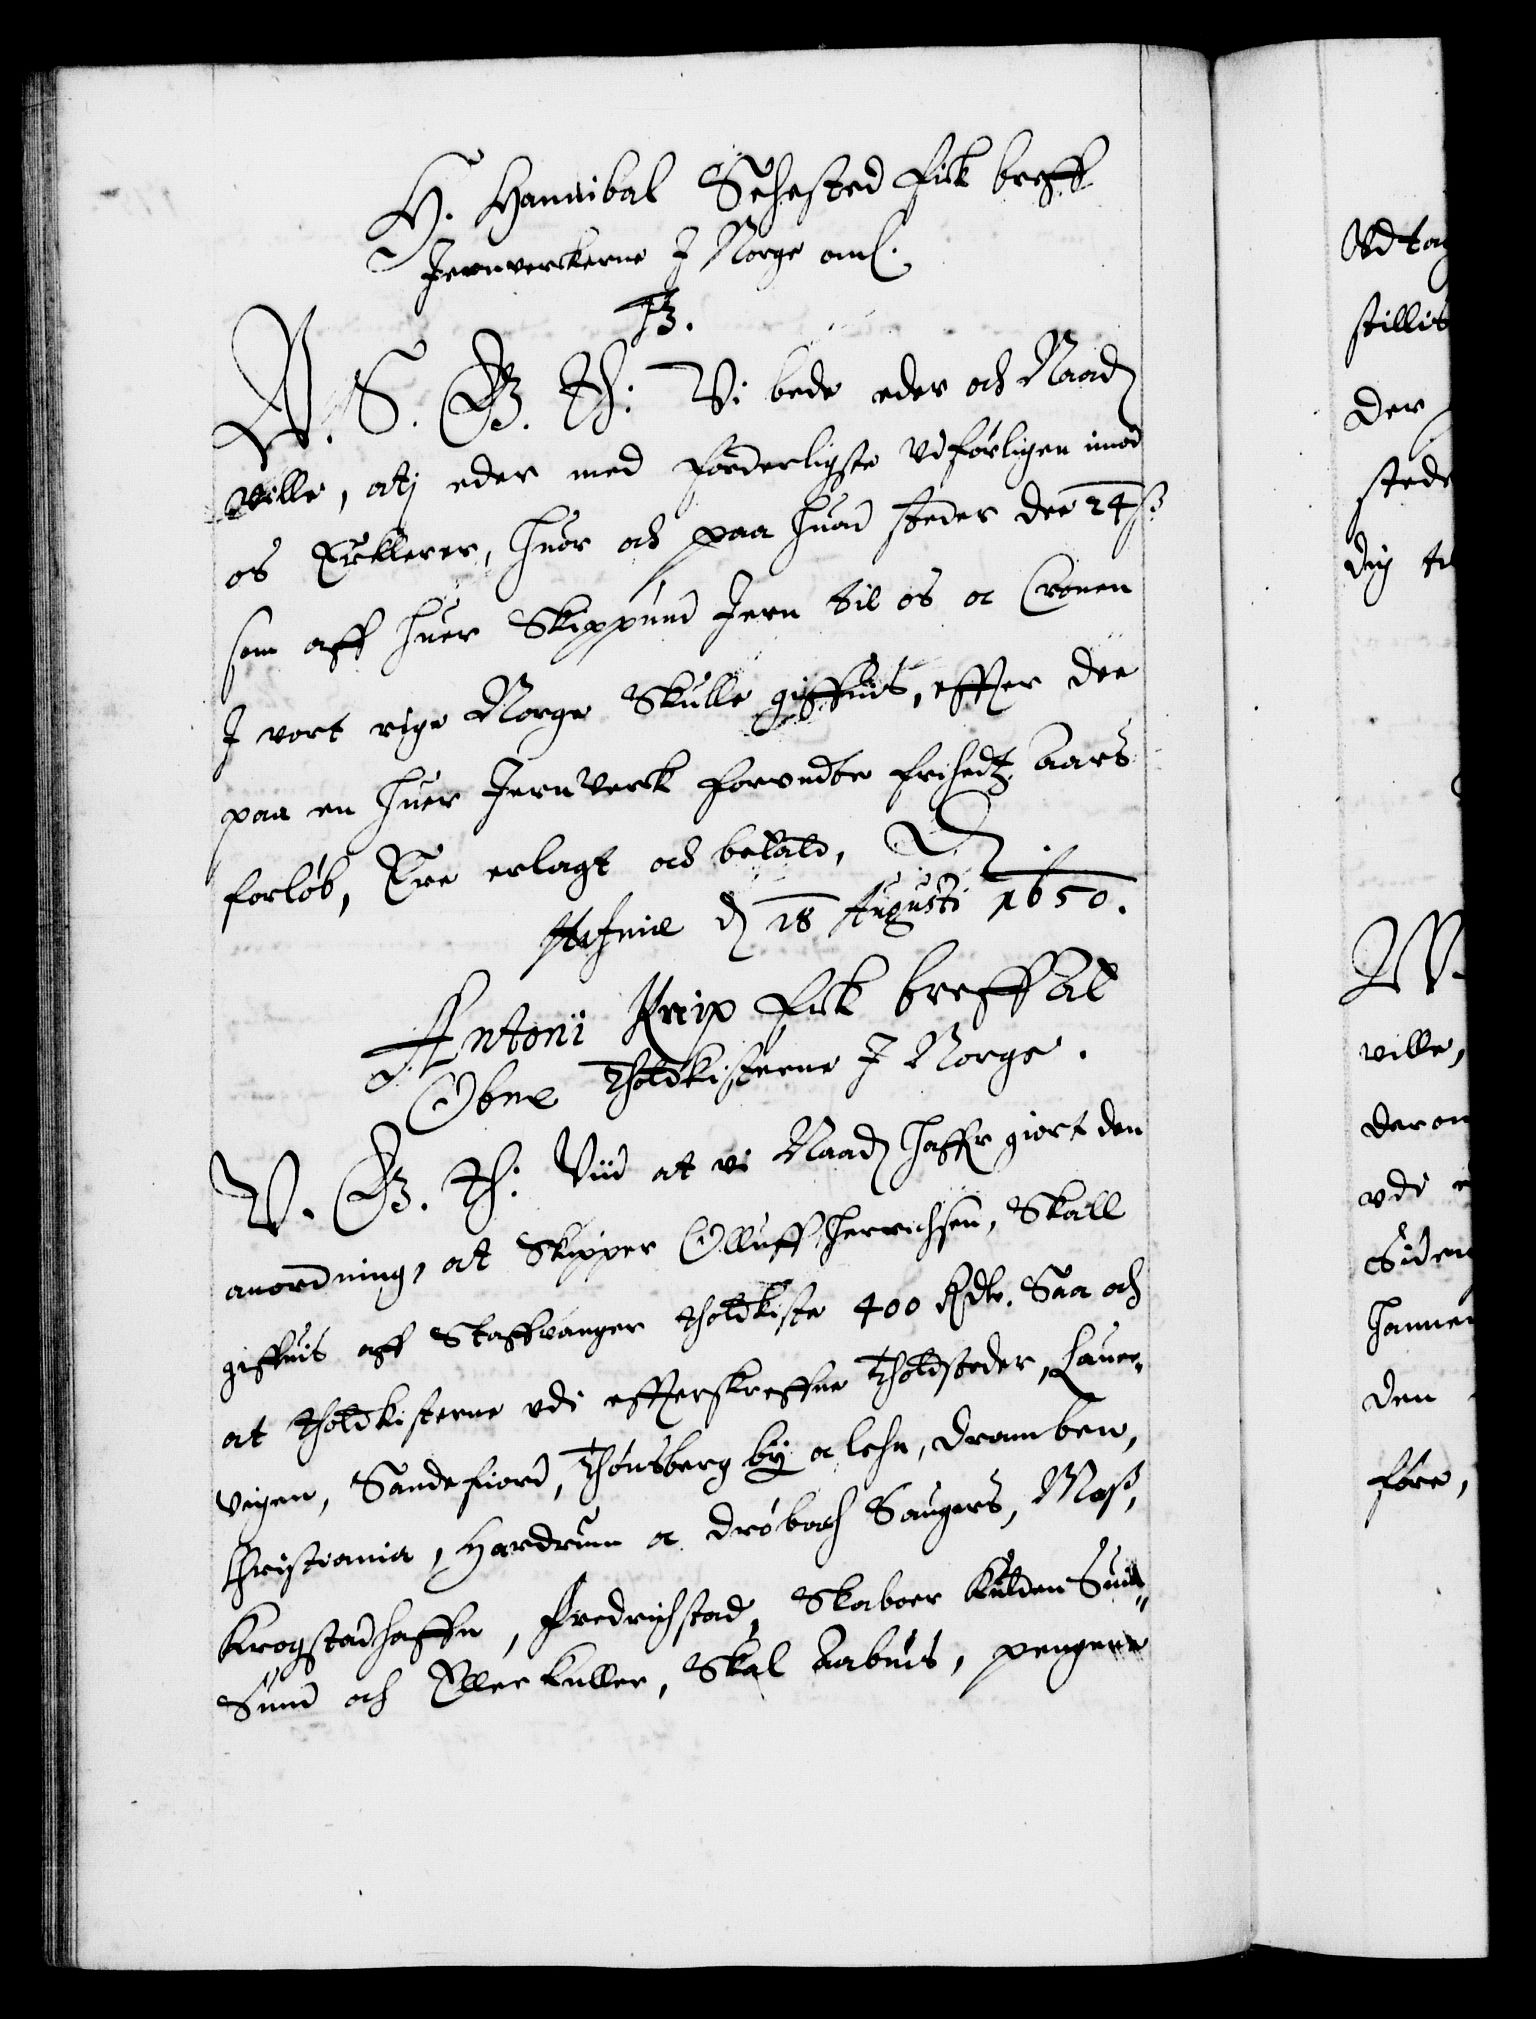 H. Hannibal Sehested fick breff
Jernverckerne J Norge anl.
F3.
V. S. G. Th: Vi bede eder och Naad
ville, at j eder med forderligste vdførligen imod
os Ercklerer, huor och paa huad steder dee 24 ß
som aff huer Skippund Jern til os oc Cronen
J vort rige Norge Skulle giffuis, effter dee
paa en huer Jernverck forundte friheds Aars
forløb, Ere erlagt och betald,
Hafniæ d 18 Augusti 1650.
Antoni Knip fick breff at
Obne Tholdkisterne J Norge.
V. G. Th: Viid at vi Naad haffr giort den
anordning, at Skipper Olluff Henrichsen, Skall
giffuis aff Staffvanger tholdkiste 400 Rdlr. Saa och
at tholdkisterne vdi effterskreffne Tholdsteder, Laur-
vigen, Sandefiord, Thønsberg by oc lehn, Dramben,
Christiania, Hardrum oc Drøbach Saugers, Moss,
Krogstadhaffn, Fredrichstad, Skaboer Kulden Sund
Sund och Ellerkuller, Skal Aabnis, pengene
Vdtag
stillis
der
stede
dig til
W.
ville,
derom
vdi
Siden
hanne
den
føre,